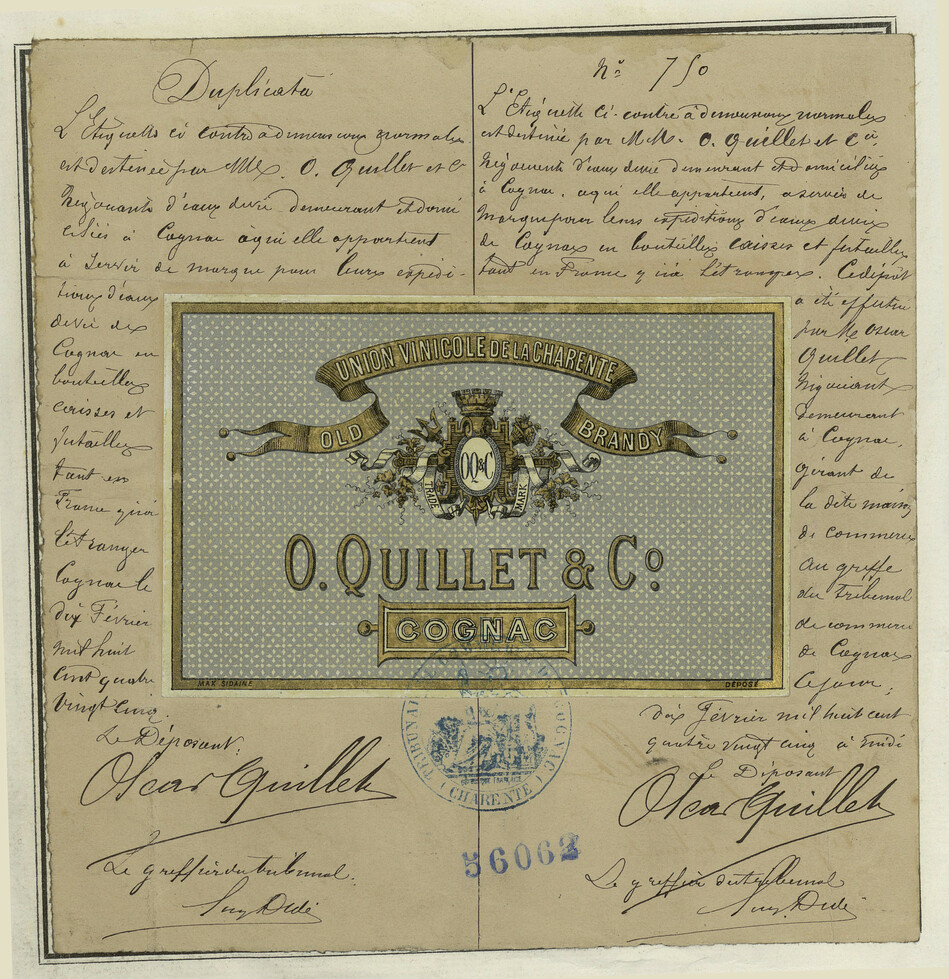 Duplicata
L'Etiquette ci contre à dimensions normales
est destinée par MM. O. Quillet et Cº
Négociants d'eaux de vie demeurant et domi
ciliés à Cognac à qui elle appartient
à servir de marque pour leurs expédi-
tions d'eaux
de vie de
Cognac en
bouteilles
caisses et
futailles
tant en
France qu'à
l'étranger
Cognac le
dix Février
mil huit
cent quatre
vingt cinq.
Le Déposant,
Oscar Quillet
Le greffier du tribunal.
Nº 750
L'Etiquette ci-contre à dimensions normales
est destinée par MM. O. Quillet et Cº,
Négociants d'eaux de vie demeurant et domiciliés
à Cognac, à qui elle appartient, à servir de
Marque pour leurs expéditions d'eaux de vie
de Cognac en bouteilles caisses et futailles
tant en France qu'à l'étranger. Ce dépôt
a été effectué
par M. Oscar
Quillet
Négociant
demeurant
à Cognac,
gérant de
la dite maison
de commerce
au greffe
du Tribunal
de commerce
de Cognac
ce jour,
dix Février mil huit cent
quatre vingt cinq à midi
Le Déposant
Oscar Quillet
Le greffier du tribunal
UNION VINICOLE DE LA CHARENTE
OLD BRANDY
OQ&C
TRADE MARK
O. QUILLET & Cº
COGNAC
MAX SIDAINE
DÉPOSÉ
TRIBUNAL DE COGNAC
(CHARENTE)
56062